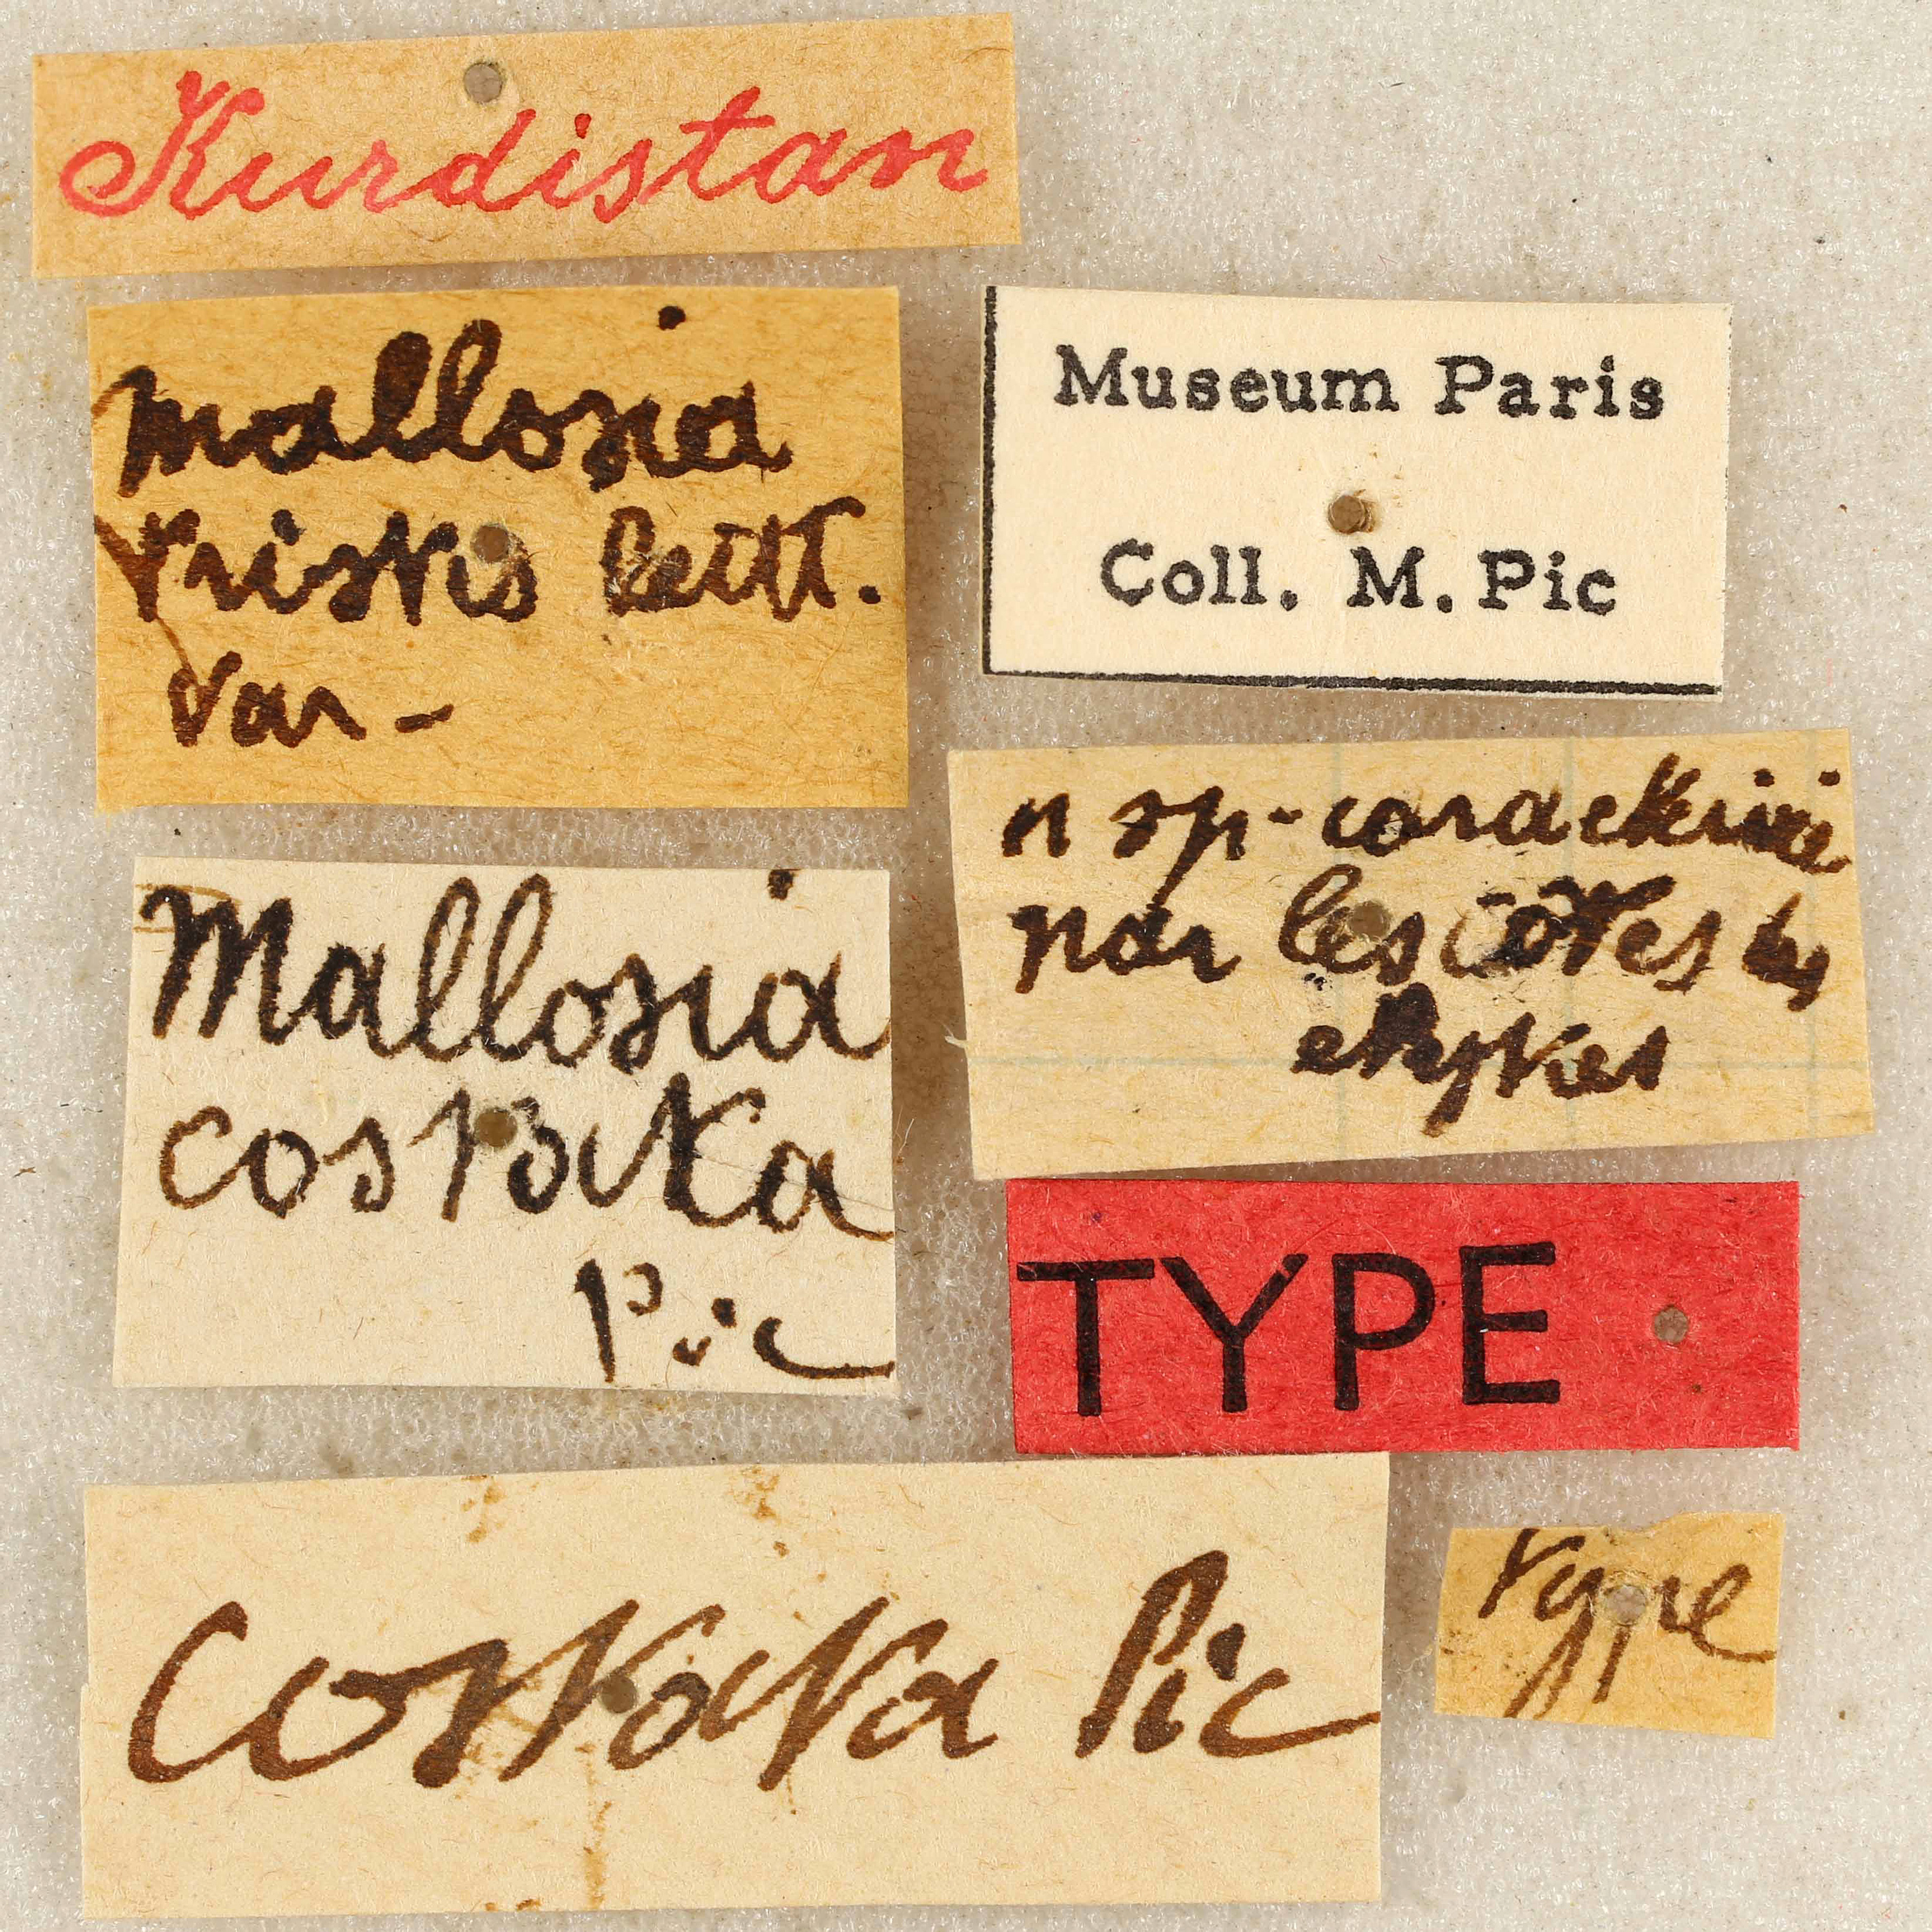 Kurdistan
Mallosia
tristis
var -
Museum Paris
Coll. M. Pic
n sp - caractérisé
par les côtes des
elytres
Mallosia
costata
Pic
TYPE
Costata Pic
type